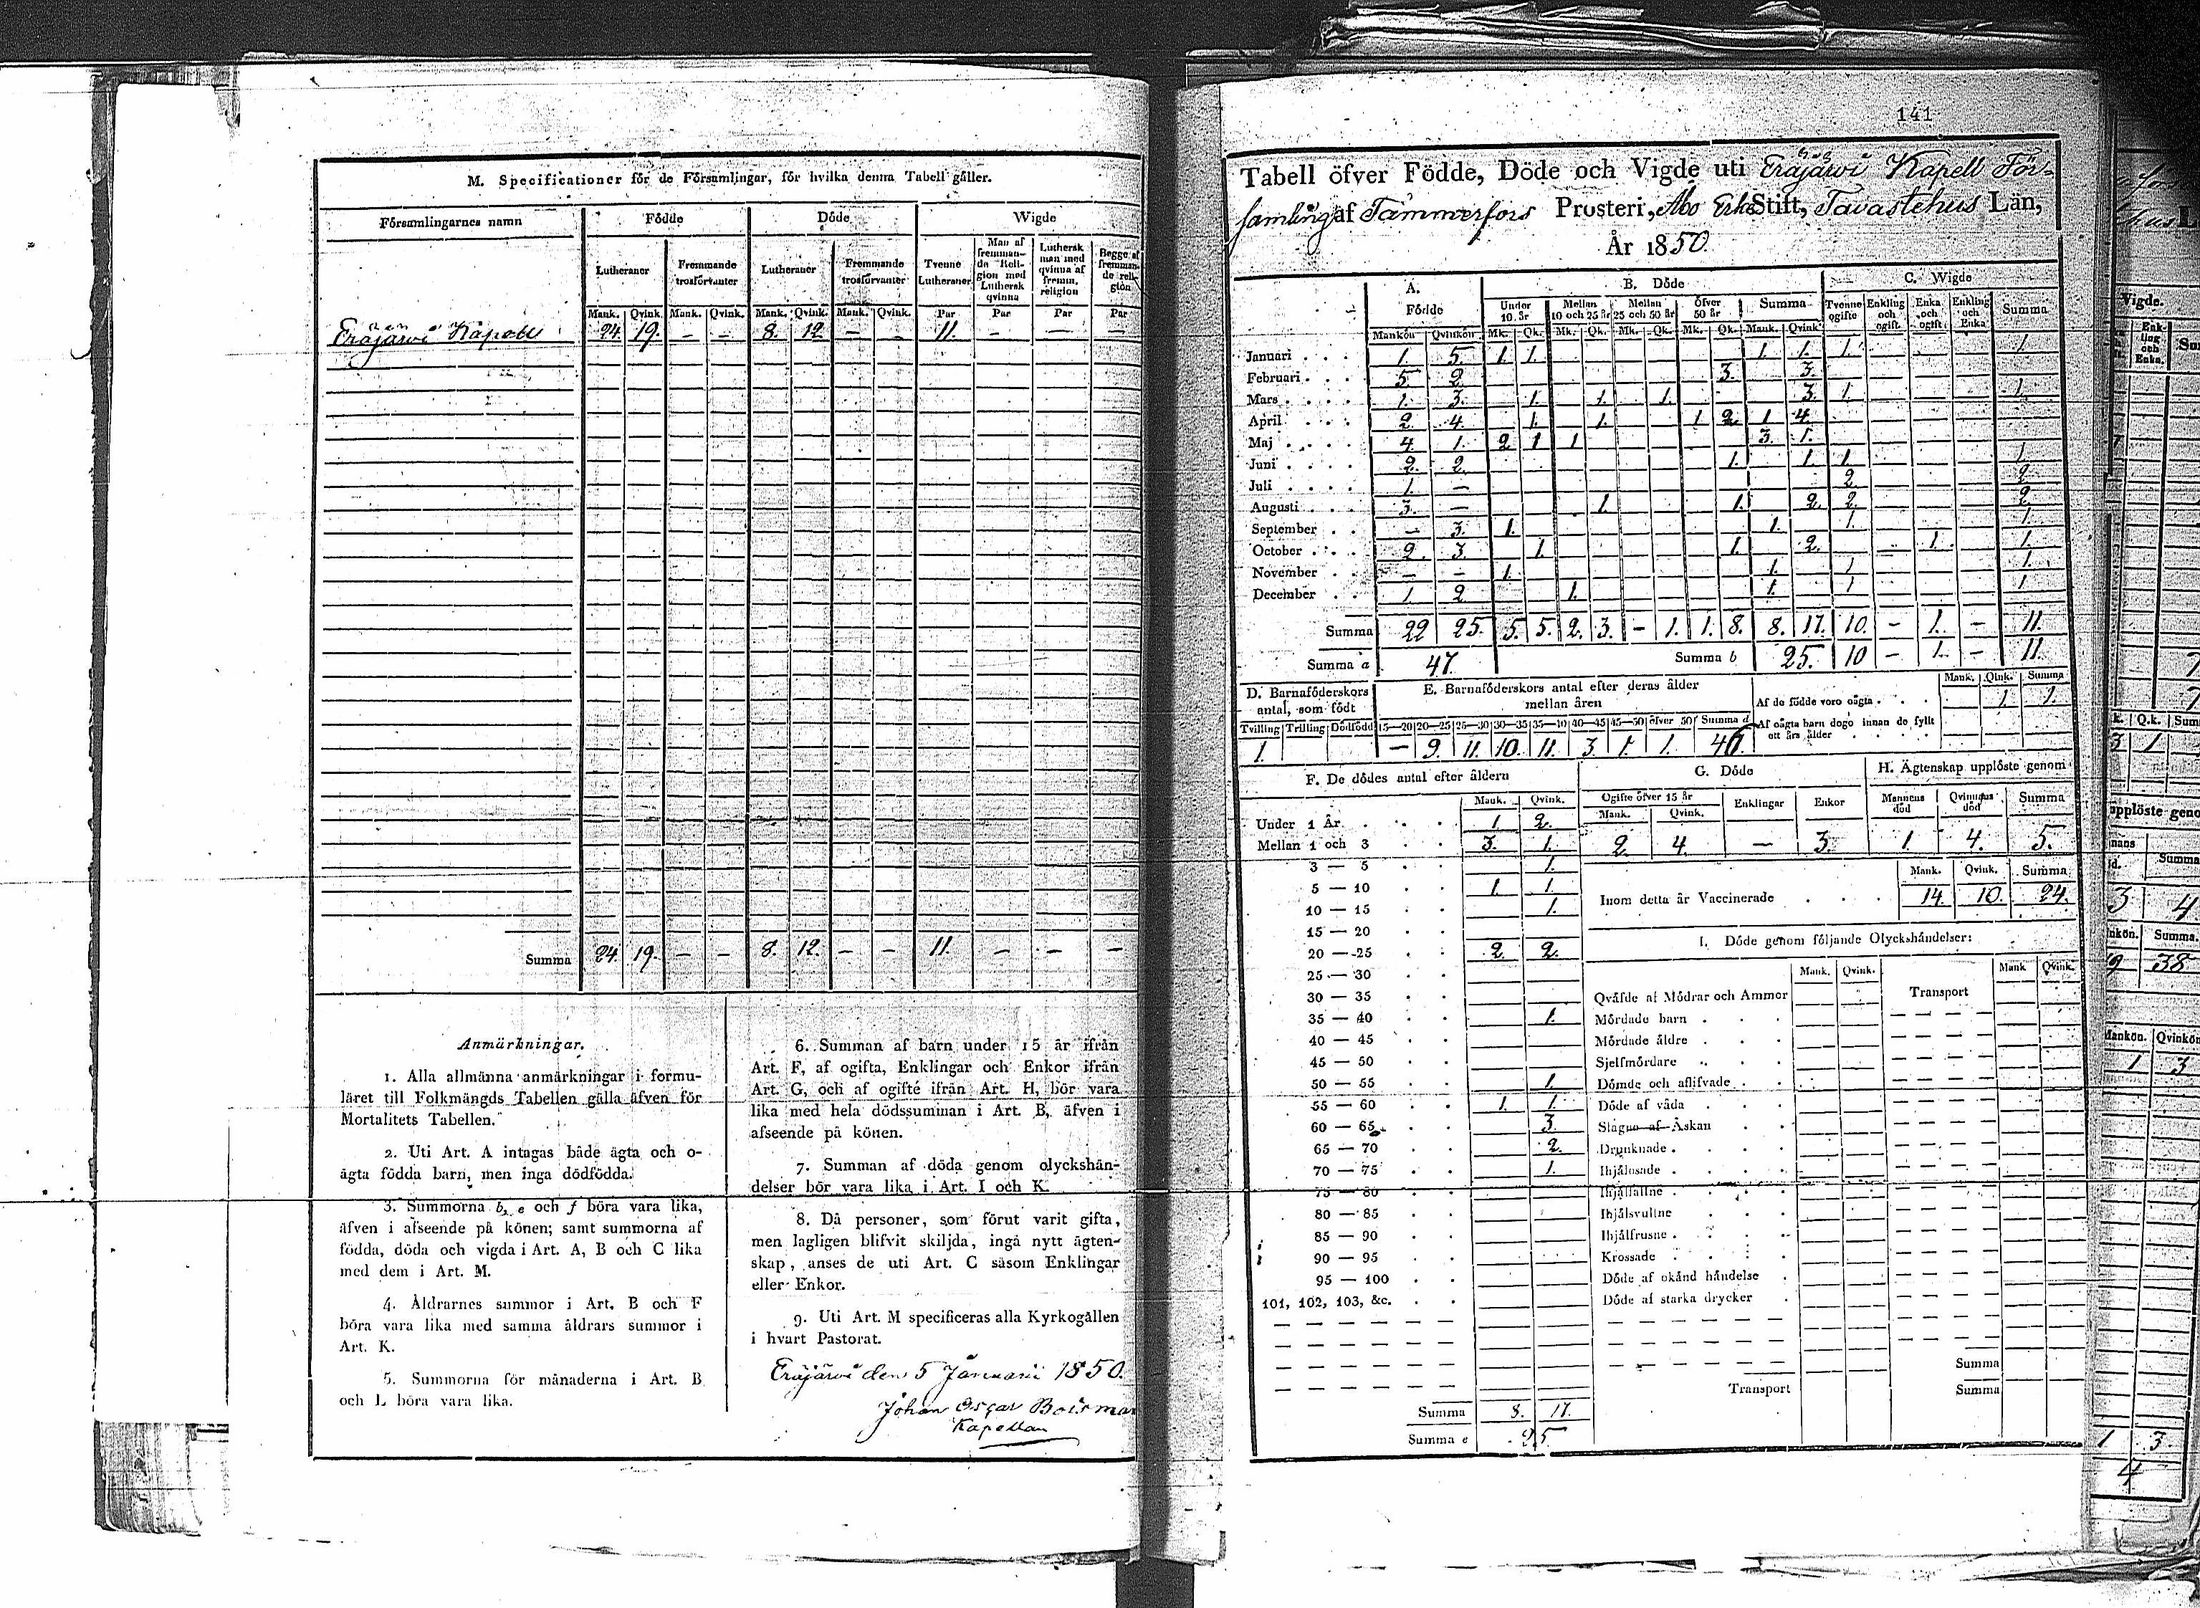 M. Specificationer för de Församlingar, för hvilka denna Tabell gäller.
Församlingarnes namn Födde Döde Wigde
Lutheraner Fremmande trosförvanter Lutheraner Fremmande trosförvanter Tvenne Lutheraner Man af fremmande Religion med Luthersk qvinna Luthersk man med qvinna af fremm. religion Begge af fremmande religion
Mank. Qvink. Mank. Qvink. Mank. Qvink. Mank. Qvink. Par Par Par Par
Eräjärvi Kapell 24. 19. – – 8. 12. – – 11. – – –
Summa 24. 19. – – 8. 12. – – 11. – – –
Anmärkningar.
1. Alla allmänna anmärkningar i formu-
läret till Folkmängds Tabellen gälla äfven för
Mortalitets Tabellen.
2. Uti Art. A intagas både ägta och o-
ägta födda barn, men inga dödfödda.
3. Summorna b, e och f böra vara lika,
äfven i afseende på könen; samt summorna af
födda, döda och vigda i Art. A, B och C lika
med dem i Art. M.
4. Åldrarnes summor i Art. B och F
böra vara lika med samma åldrars summor i
Art. K.
5. Summorna för månaderna i Art. B
och L böra vara lika.
6. Summan af barn under 15 år ifrån
Art. F, af ogifta, Enklingar och Enkor ifrån
Art. G, och af ogifte ifrån Art. H, bör vara
lika med hela dödssumman i Art. B, äfven i
afseende på könen.
7. Summan af döda genom olyckshän-
delser bör vara lika i Art. I och K.
8. Då personer, som förut varit gifta,
men lagligen blifvit skiljda, ingå nytt ägten-
skap, anses de uti Art. C såsom Enklingar
eller Enkor.
9. Uti Art. M specificeras alla Kyrkogällen
i hvart Pastorat.
Eräjärvi den 5 Januarii 1850.
Johan Oscar Boisman
Kapellan
141
Tabell öfver Födde, Döde och Vigde uti Eräjärvi Kapell För-
samling af Tammerfors Prosteri, Åbo Erke Stift, Tavastehus Län,
År 1850.
A. Födde B. Döde C. Wigde
Under 10 år Mellan 10 och 25 år Mellan 25 och 50 år Öfver 50 år Summa Tvenne ogifte Enkling och ogift Enka och ogift Enkling och Enka Summa
Mankön Qvinkön Mk. Qk. Mk. Qk. Mk. Qk. Mk. Qk. Mank. Qvink.
Januari 1. 5. 1. 1. 1. 1. 1. 1.
Februari 5. 2. 3. 3.
Mars 1. 3. 1. 1. 1. 3. 1. 1.
April 2. 4. 1. 1. 1 2. 1 4.
Maj 4. 1. 2 1 1 3. 1.
Juni 2. 2. 1. 1. 1. 1.
Juli 1. – 2. 2.
Augusti 3. – 1. 1. 2. 2. 2.
September – 3. 1. 1. 1. 1.
October 2. 3. 1. 1. 2. 1. 1.
November – – 1. 1. 1 1.
December 1. 2. 1. 1. 1 1
Summa 22 25. 5. 5. 2. 3. – 1. 1. 8. 8. 17. 10. – 1. – 11.
Summa a 47. Summa b 25. 10 – 1. – 11.
D. Barnaföderskors antal, som födt
Tvilling Trilling Dödfödd
1.
E. Barnaföderskors antal efter deras ålder mellan åren
15—20 20—25 25—30 30—35 35—40 40—45 45—50 öfver 50 Summa d
– 9. 11. 10. 11. 3. 1. 1. 46.
Mank. Qink. Summa
Af de födde voro oägta 1. 1.
Af oägta barn dogo innan de fyllt ett års ålder
F. De dödes antal efter åldern
Mank. Qvink.
Under 1 År 1 2.
Mellan 1 och 3 3. 1.
3 — 5 1.
5 — 10 1. 1.
10 — 15 1.
15 — 20
20 — 25 2. 2.
25 — 30
30 — 35
35 — 40 1.
40 — 45
45 — 50
50 — 55 1.
55 — 60 1. 1.
60 — 65 3.
65 — 70 2.
70 — 75 1.
75 — 80
80 — 85
85 — 90
90 — 95
95 — 100
101, 102, 103, &c.
Summa 8. 17.
Summa e 25.
G. Döde
Ogifte öfver 15 år Enklingar Enkor
Mank. Qvink.
2. 4. – 3.
H. Ägtenskap upplöste genom
Mannens död Qvinnans död Summa
1 4. 5.
Mank. Qvink. Summa
Inom detta år Vaccinerade 14. 10. 24.
I. Döde genom följande Olyckshändelser:
Mank. Qvink. Mank Qvink.
Qväfde af Mödrar och Ammor Transport
Mördade barn
Mördade äldre
Sjelfmördare
Dömde och aflifvade
Döde af våda
Slagne af Åskan
Drunknade
Ihjälosade
Ihjälfallne
Ihjälsvultne
Ihjälfrusne
Krossade
Döde af okänd händelse
Döde af starka drycker
Summa
Transport Summa